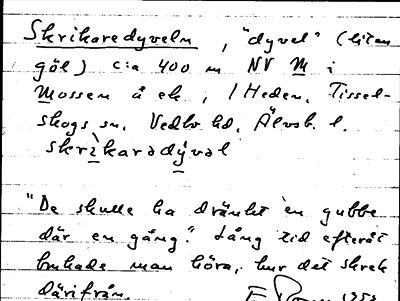 Skrikaredyveln, "dyvel" (liten
göl) c:a 400 m NV M i
Mossen å ek, i Heden, Tissel-
skogs sn. Vedbo hd, Älvsb. l.
skrikaradývəl
"De skulle ha dränkt en gubbe
där en gång." Lång tid efteråt
brukade man höra, hur det skrek
därifrån.